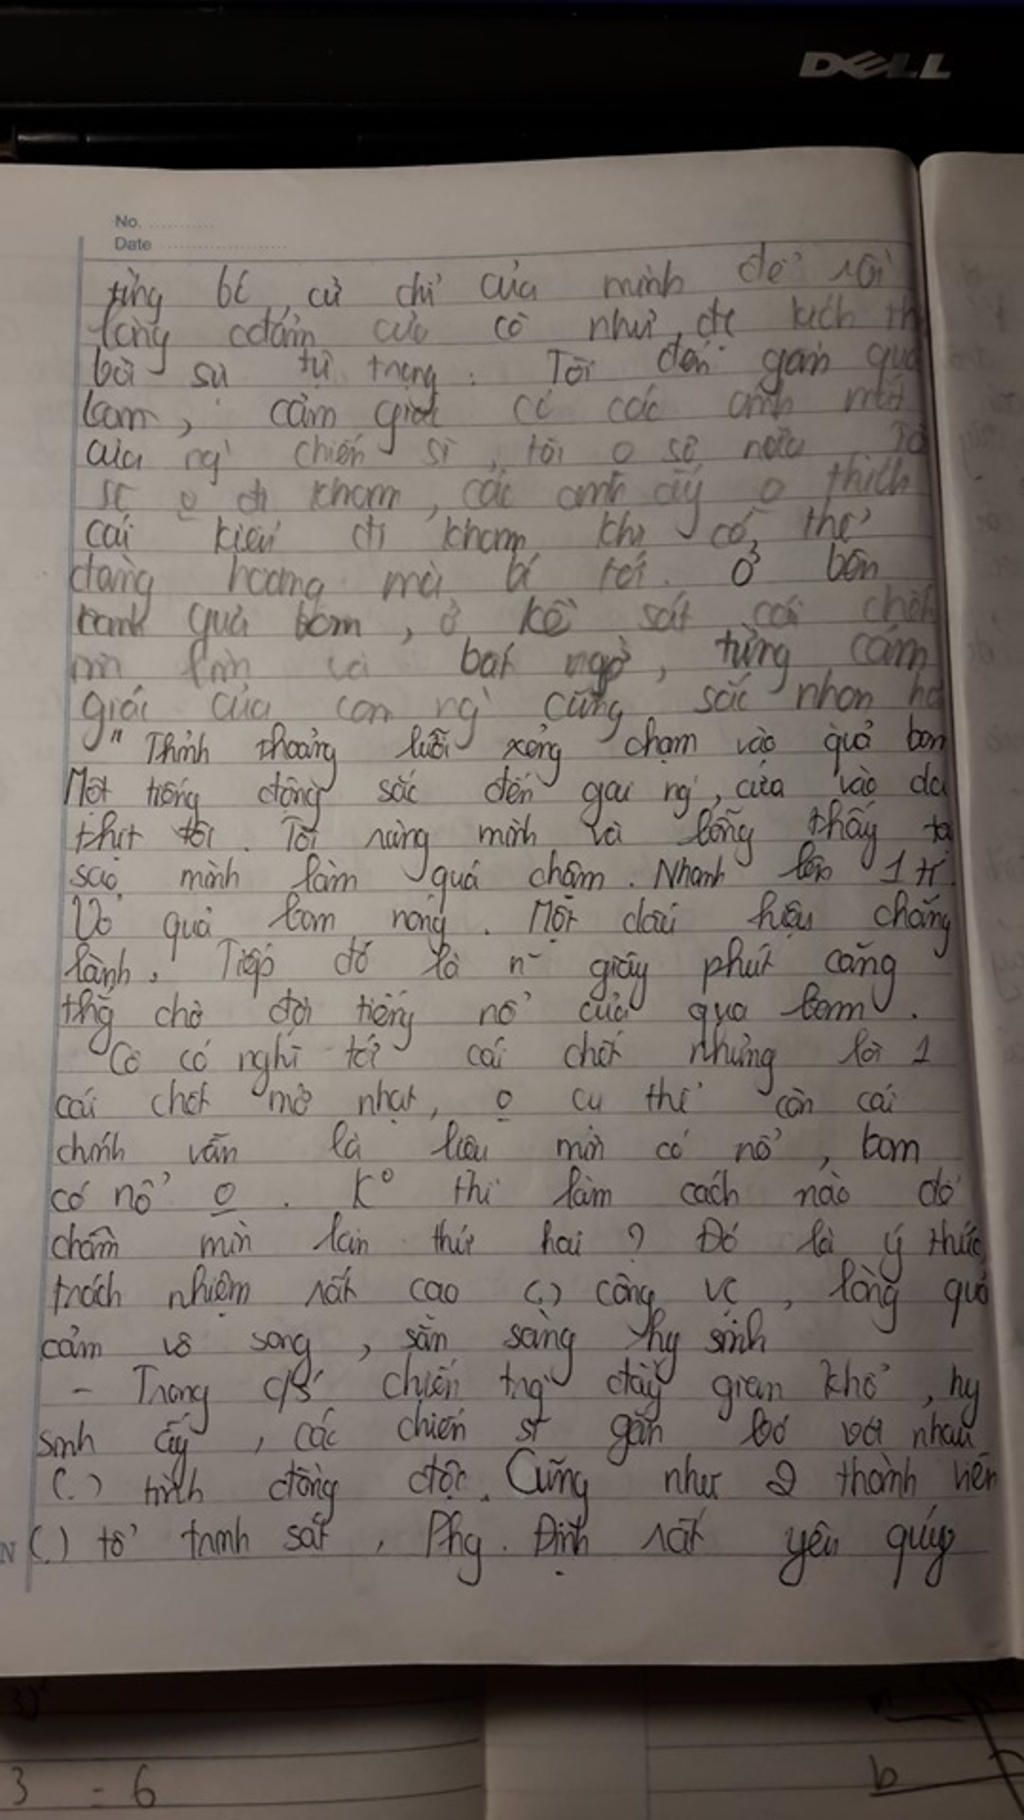 DELL
No.
Date
từng bc, cử chỉ của mình để rồi
lòng dũng cảm cô như đc kích th
bởi sự tự trọng. Tôi đến gần quả
bom, cảm giác có các anh mắt
của ng` chiến sĩ, tôi o sợ nữa. Tô
sẽ o đi khom, các anh ấy o thích
cái kiểu đi khom khi có thể
đàng hoàng mà bc tới. Ở bên
cạnh quả bom, ở kề sát cái chết
im lìm và bất ngờ, từng cảm
giác của con ng` cũng sắc nhọn hơ
" Thỉnh thoảng lưỡi xẻng chạm vào quả bom
Một tiếng động sắc đến gai ng`, cứa vào da
thịt tôi. Tôi rùng mình và bỗng thấy tạ
sao mình làm quá chậm. Nhanh lên 1 tí.
Vỏ quả bom nóng. Một dấu hiệu chẳng
lành. Tiếp đó là n~ giây phút căng
thg chờ đợi tiếng nổ của qua bom.
Cô có nghĩ tới cái chết nhưng là 1
cái chết mờ nhạt, o cụ thể còn cái
chính vẫn là liệu mìn có nổ, bom
có nổ o. K° thì làm cách nào để
châm mìn lần thứ hai? Đó là ý thức
trách nhiệm rất cao (.) công vc, lòng quả
cảm vô song, sẵn sàng hy sinh
- Trong c/s chiến trg` đầy gian khổ, hy
sinh ấy, các chiến sĩ gắn bó với nhau
(.) tình đồng đội. Cũng như 2 thành viên
(.) tổ trinh sát, Phg. Định rất yêu quý
3 = 6
b